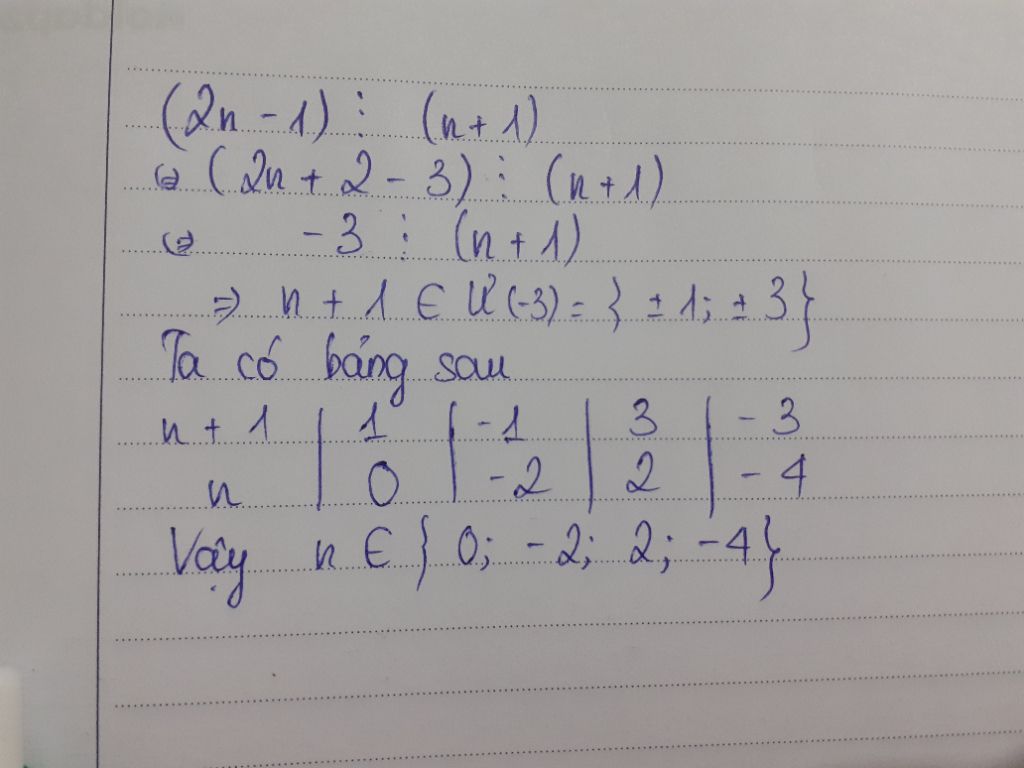 (2n - 1) ⋮ (n + 1)
⇔ (2n + 2 - 3) ⋮ (n + 1)
⇔ - 3 ⋮ (n + 1)
⇒ n + 1 ∈ Ư(-3) = { ± 1; ± 3}
Ta có bảng sau
n + 1 | 1 | -1 | 3 | - 3
n | 0 | -2 | 2 | - 4
Vậy n ∈ { 0; -2; 2; -4}